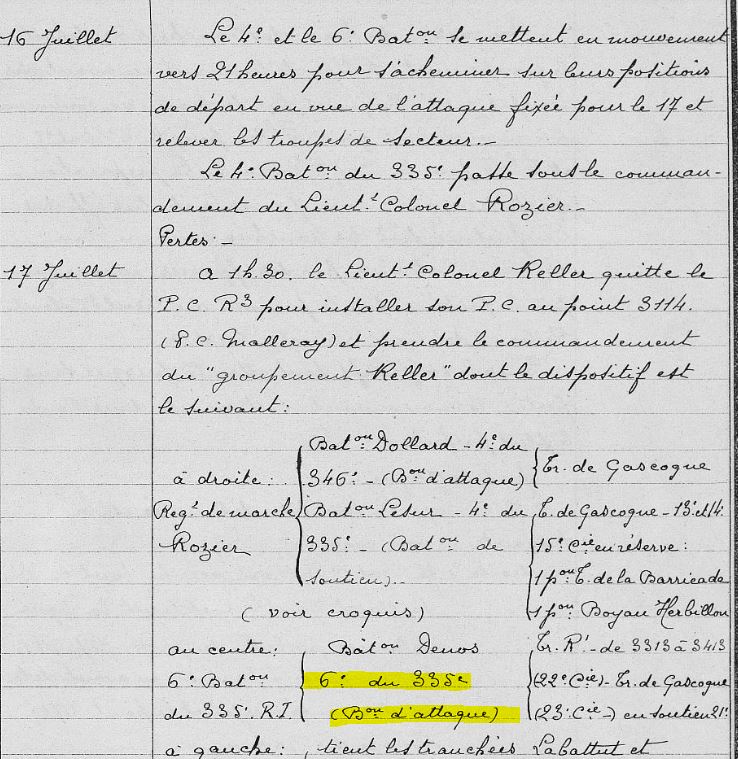 16 Juillet
Le 4e et le 6e Batou se mettent en mouvement
vers 21 heures pour s'acheminer sur leurs positions
de départ en vue de l'attaque fixée pour le 17 et
relever les troupes de secteur.-
Le 4e Batou du 335e passe sous le comman-
dement du Lieutt Colonel Rozier.-
Pertes:-
17 Juillet
A 1h.30. le Lieutt Colonel Keller quitte le
P.C. R3 pour installer son P.C. au point 3114.
(P.C. Malleray) et prendre le commandement
du "groupement Keller" dont le dispositif est
le suivant:
à droite:
Regt de marche
Rozier
Batou Dollard - 4e du
346e - (Bou d'attaque)
Batou Lesur - 4e du
335e - (Batou de
soutien)..
Tr. de Gascogne
T. de Gascogne - 13e et 14
15e Cie en réserve:
1 pou T. de la Barricade
1 pou Boyau Herbillon
(voir croquis)
au centre:
6e Batou
du 335e R.I.
Batou Denos
6e du 335e
(Bou d'attaque)
Tr. R1 - de 3313 à 3413
(22e Cie) - Tr. de Gascogne
(23e Cie -) en soutien 21e
à gauche:
tient les tranchées Labattut et